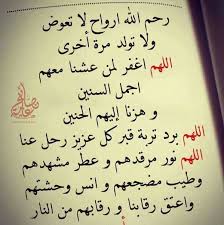 رحم الله ارواح لا تعوض
ولا تولد مرة أخرى
اللهم اغفر لمن عشنا معهم
اجمل السنين
و هزنا إليهم الحنين
اللهم برد تربة قبر كل عزيز رحل عنا
اللهم نور مرقدهم و عطر مشهدهم
وطيب مضجعهم و انس وحشتهم
واعتق رقابنا و رقابهم من النار